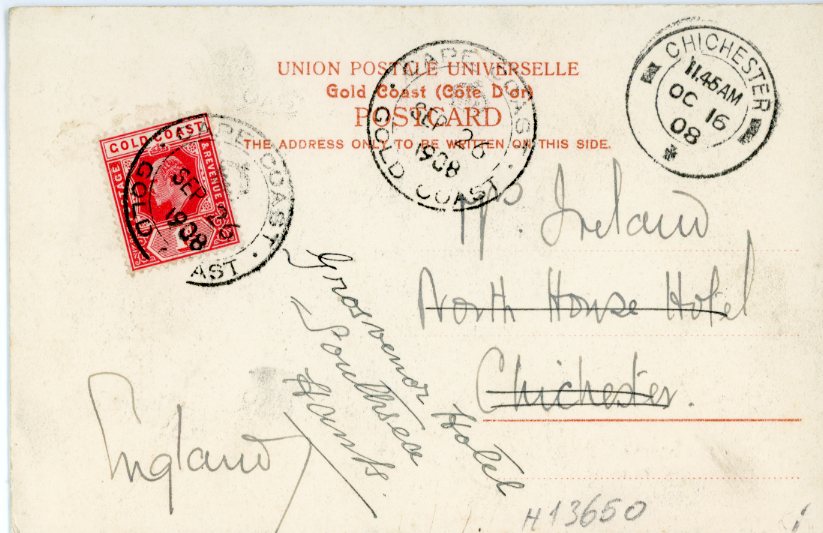 UNION POSTALE UNIVERSELLE
Gold Coast (Côte D'or)
POSTCARD
THE ADDRESS ONLY TO BE WRITTEN ON THIS SIDE.
GOLD COAST
& REVENUE
CAPE COAST
SEP 26
1908
GOLD COAST
CAPE COAST
SEP 26
1908
GOLD COAST
CHICHESTER
11.45 AM
OC 16
08
Ireland
North House Hotel
Chichester.
Grosvenor Hotel
Southsea
Hants.
England
H13650